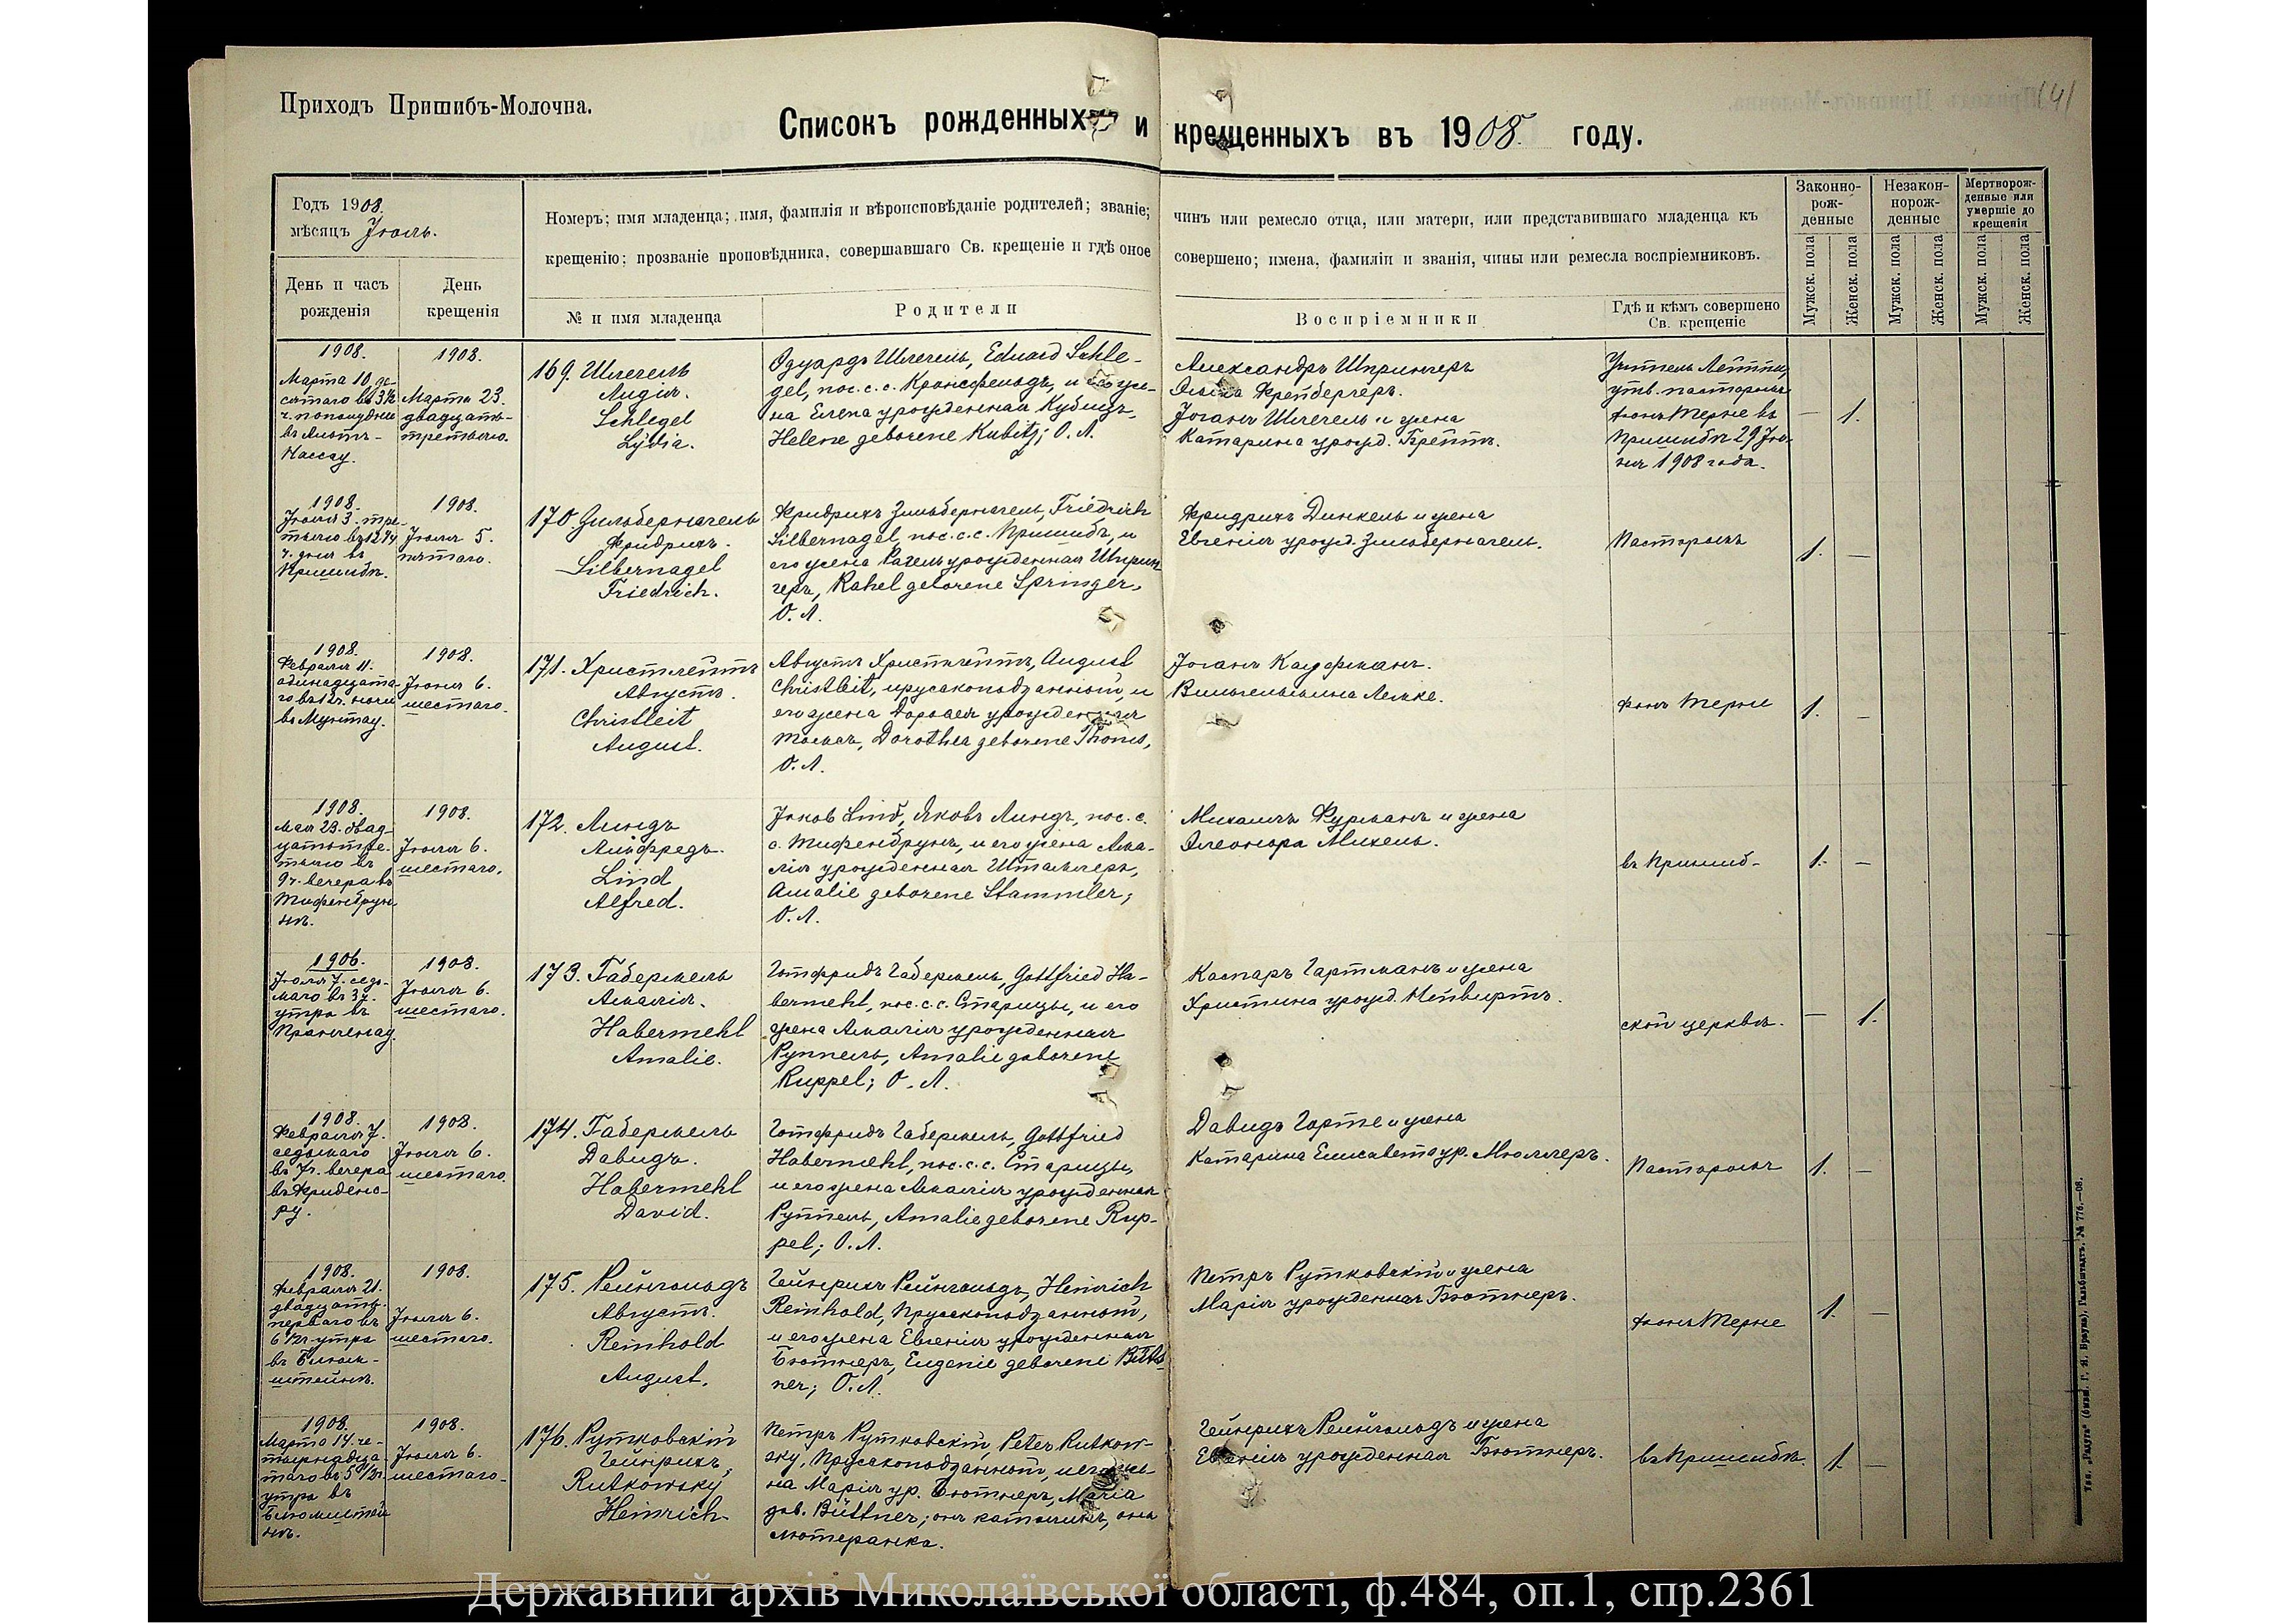 Приходъ Пришибъ-Молочна.
Списокъ рожденныхъ и крещенныхъ въ 1908. году.
141
Годъ 1908.
мѣсяцъ Іюль.
Номеръ; имя младенца; имя, фамилія и вѣроисповѣданіе родителей; званіе;
крещенію; прозваніе проповѣдника, совершавшаго Св. крещеніе и гдѣ оное
чинъ или ремесло отца, или матери, или представившаго младенца къ
совершено; имена, фамиліи и званія, чины или ремесла воспріемниковъ.
Законно-
рож-
денные
Незакон-
норож-
денные
Мертворож-
денные или
умершіе до
крещенія
День и часъ
рожденія
День
крещенія
№ и имя младенца
Родители
Воспріемники
Гдѣ и кѣмъ совершено
Св. крещеніе
Мужск. пола
Женск. пола
Мужск. пола
Женск. пола
Мужск. пола
Женск. пола
1908.
Марта 10. де-
сятаго въ 3½
ч. пополудни
въ Альтъ-
Нассау.
1908.
Марта 23.
двадцать-
третьяго.
169. Шлегель
Лидія.
Schlegel
Lydia.
Эдуардъ Шлегель, Eduard Schle-
gel, пос. с. с. Кронсфельдъ, и его же-
на Елена урожденная Кубицъ,
Helene geborene Kubitz; О. Л.
Александръ Шпрингеръ
Ольга Фрейбергеръ.
Іоганъ Шлегель и жена
Катарина урожд. Бреттъ.
Учитель
утв. пасторомъ
фонъ Терне въ
Пришибѣ 29 Ію-
ня 1908 года.
— 1.
1908.
Іюля 3. тре-
тьяго въ 12¼
ч. дня въ
Пришибѣ.
1908.
Іюля 5.
пятаго.
170. Зильбернагель
Фридрихъ.
Silbernagel
Friedrich.
Фридрихъ Зильбернагель, Friedrich
Silbernagel, пос. с. с. Пришибъ, и
его жена Рахель урожденная Шприн-
геръ, Rahel geborene Springer,
О. Л.
Фридрихъ Динкель и жена
Евгенія урожд. Зильбернагель.
Пасторомъ
1. —
1908.
Февраля 11.
одинадцата-
го въ 12 ч. ночи
въ Мунтау.
1908.
Іюля 6.
шестаго.
171. Христлейтъ
Августъ.
Christleit
August.
Августъ Христлейтъ, August
Christleit, прусскоподданный, и
его жена Доротея урожденная
Томсъ, Dorothea geborene Thoms,
О. Л.
Іоганъ Кауфманъ.
Вильгельмина Лемке.
фонъ Терне
1. —
1908.
Мая 23. двад-
цатьтре-
тьяго въ
9 ч. вечера въ
Тифенбрун-
нѣ.
1908.
Іюля 6.
шестаго.
172. Линдъ
Альфредъ.
Lind
Alfred.
Jakob Lind, Яковъ Линдъ, пос. с.
с. Тифенбрунъ, и его жена Ама-
лія урожденная Штаммлеръ,
Amalie geborene Stammler;
О. Л.
Михаилъ Фурманъ и жена
Элеонора Михель.
въ Пришиб-
1. —
1906.
Іюля 7. седь-
маго въ 3 ч.
утра въ
1908.
Іюля 6.
шестаго.
173. Габермель
Амалія.
Habermehl
Amalie.
Готфридъ Габермель, Gottfried Ha-
bermehl, пос. с. с. Старицы, и его
жена Амалія урожденная
Руппель, Amalie geborene
Ruppel; О. Л.
Каспаръ Гартманъ и жена
Христина урожд. Нейвиртъ.
ской церкви.
— 1.
1908.
Февраля 7.
седьмаго
въ 7 ч. вечера
въ Фриденс-
ру.
1908.
Іюля 6.
шестаго.
174. Габермель
Давидъ.
Habermehl
David.
Готфридъ Габермель, Gottfried
Habermehl, пос. с. с. Старицы,
и его жена Амалія урожденная
Руппель, Amalie geborene Rup-
pel; О. Л.
Давидъ Гарте и жена
Катарина Елисавета ур. Мюллеръ.
Пасторомъ
1. —
1908.
Февраля 21.
двадцать-
перваго въ
6 ½ ч. утра
въ Блюм-
штейнѣ.
1908.
Іюля 6.
шестаго.
175. Рейнгольдъ
Августъ.
Reinhold
August.
Гейнрихъ Рейнгольдъ, Heinrich
Reinhold, прусскоподданный,
и его жена Евгенія урожденная
Бютнеръ, Eugenie geborene Bütt-
ner; О. Л.
Петръ Рутковскій и жена
Марія урожденная Бютнеръ.
фонъ Терне
1. —
1908.
Марта 14. че-
тырнадца-
таго въ 5 ½ ч.
утра въ
Блюмштей-
нѣ.
1908.
Іюля 6.
шестаго.
176. Рутковскій
Гейнрихъ.
Rutkowsky
Heinrich.
Петръ Рутковскій, Peter Rutkow-
sky, прусскоподданный, и его же-
на Марія ур. Бютнеръ, Maria
geb. Büttner; онъ католикъ, она
лютеранка.
Гейнрихъ Рейнгольдъ и жена
Евгенія урожденная Бютнеръ.
въ Пришибѣ.
1. —
Тип. „Радуга“ (бывш. Г. Я. Брауна), Гальбштадтъ. № 776.—08.
Державний архів Миколаївської області, ф.484, оп.1, спр.2361